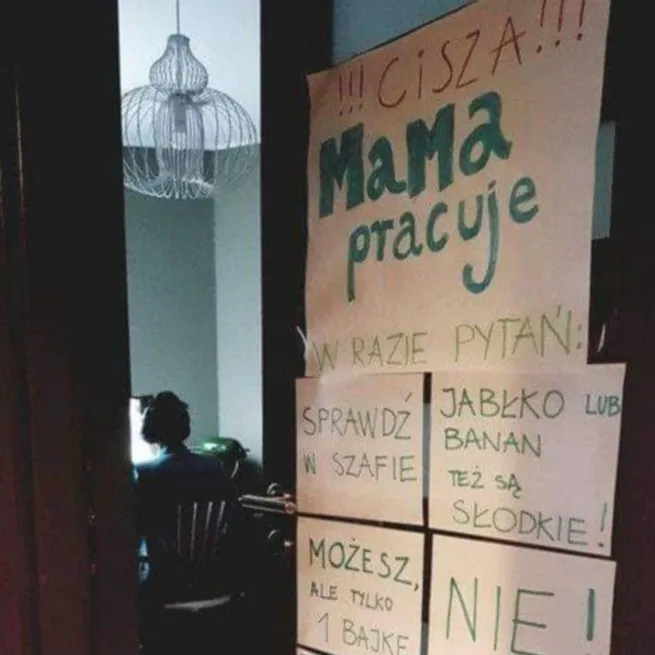 !!! CiSZA!!!
MaMa
pracuje
W RAZIE PYTAŃ:
SPRAWDŹ
W SZAFIE
JABŁKO LUB
BANAN
TEŻ SĄ
SŁODKIE!
MOŻESZ,
ALE TYLKO
1 BAJKĘ
NIE!